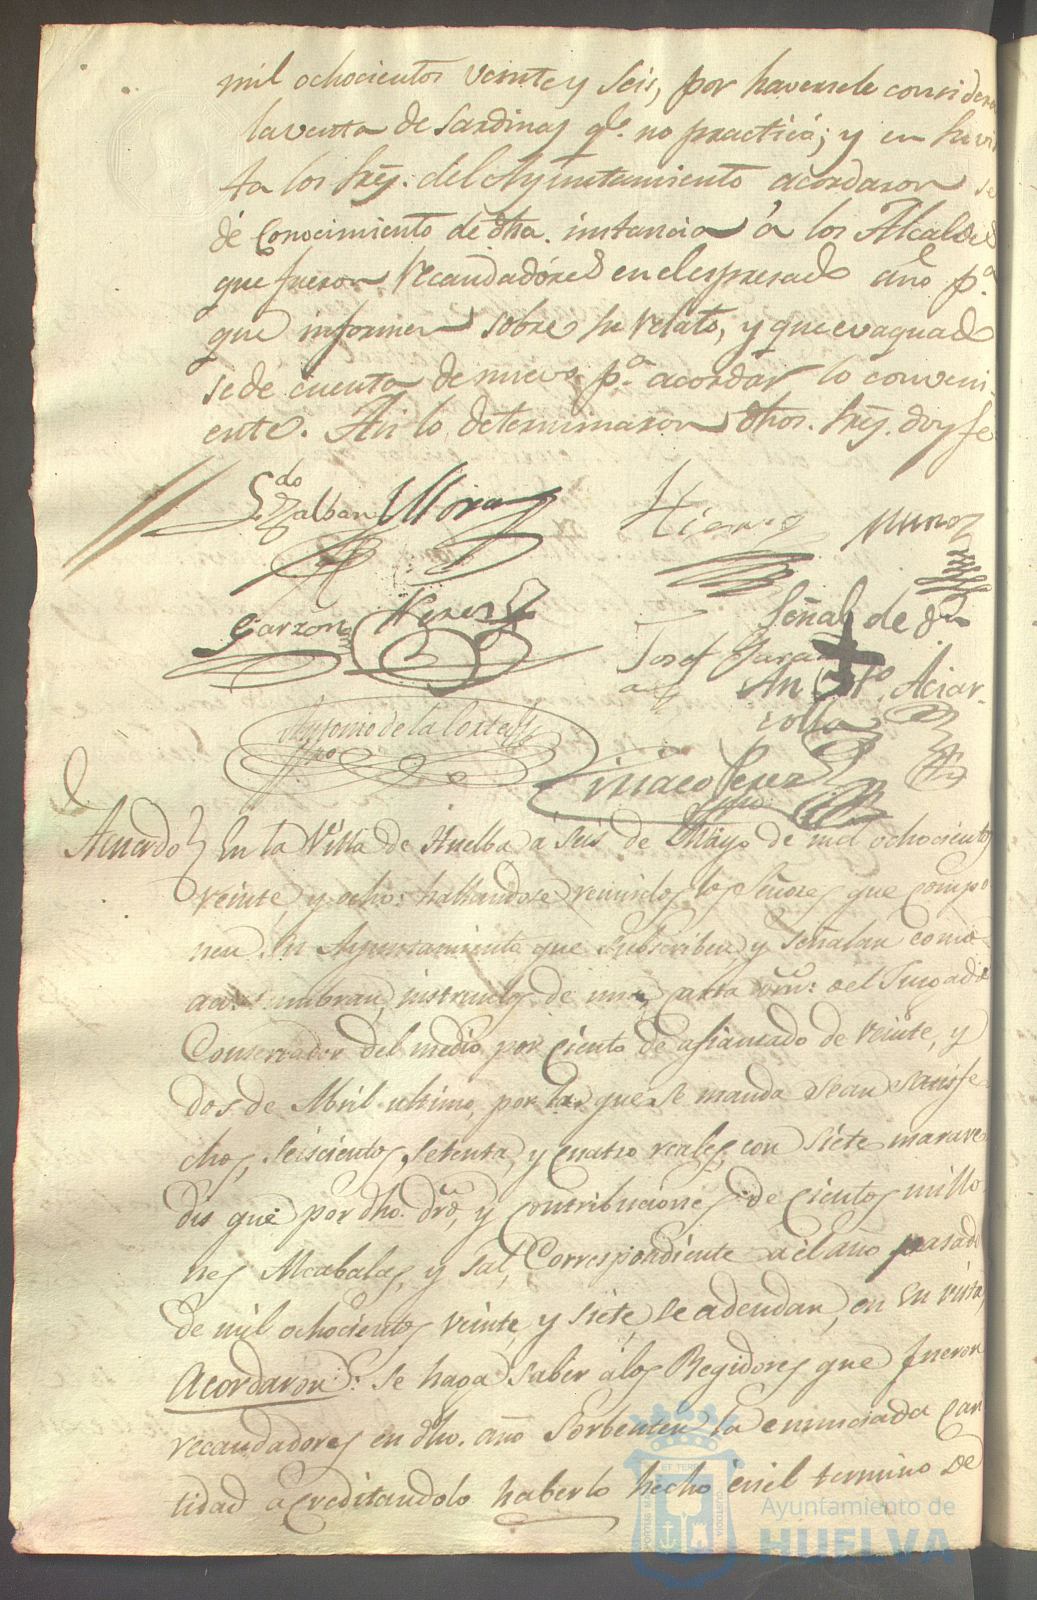 mil ochocientos veinte y seis, por haversele considera
la venta de Sardinas qe. no practicó; y en su vis
ta los Sres. del Ayuntamiento acordaron se
dé conocimiento de dha. instancia á los Alcaldes
que fueron recaudadóres en el espresado año pa.
que informen sobre su relato, y que evaquado
se dé cuenta de nuevo pa. acordar lo conveni
ente. Asi lo determinaron dhos. Sres. doy fe
Garzon Perez
Muñoz
Señal de
Josef
Antonio de la Corte
Ciriaco Perez
Acuerdo
En la Villa de Huelba á seis de Mayo de mil ochocientos
veinte, y ocho: hallandose reunidos los Señores que compo
nen su Ayuntamiento que subscriben y señalan como
acostumbran, instruidos de una carta del Juzgado
Conservador del medio por ciento de afianzado de veinte, y
dos de Abril ultimo, por la que se manda sean satisfe
chos, seiscientos setenta, y cuatro reales, con siete marave
dis que por dho. dro, y contribuciones de cientos millo
nes Alcabalas, y sal, Correspondiente a el año pasado
de mil ochocientos veinte, y siete se adeudan, en su vista,
Acordaron: Se haga saber á los Regidores que fueron
recaudadores en dho. año solventen la enunciada can
tidad acreditandolo haberlo hecho en el termino de
Ayuntamiento de
HUELVA